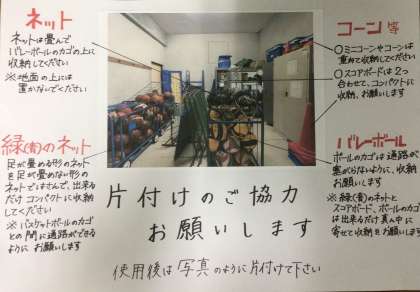 ネット
ネットは畳んで
バレーボールのカゴの上に
収納してください
※地面の上には
置かないでください
緑(青)のネット
足が畳める形のネット
を足が畳めない形の
ネットではさんで、出来る
だけコンパクトに収納
してください
※バスケットボールのカゴ
との間に通路ができる
ようにお願いします
コーン等
○ミニコーンやコーンは
重ねて収納してください
○スコアボードは2つ
合わせて、コンパクトに
収納、お願いします
バレーボール
ボールのカゴは通路が
塞がらないように、収納
お願いします
※緑(青)のネットと
スコアボード、ボールのカゴ
は出来るだけ真ん中に
寄せて収納をお願いします
片付けのご協力
お願いします
使用後は写真のように片付けて下さい